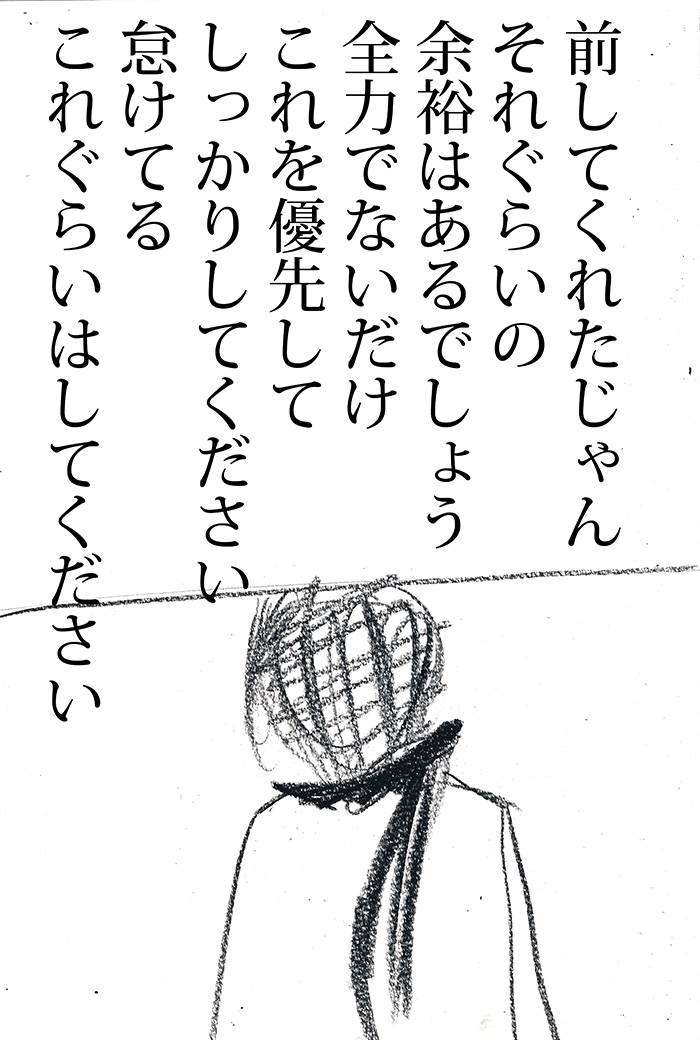 前してくれたじゃん
それぐらいの
余裕はあるでしょう
全力でないだけ
これを優先して
しっかりしてください
怠けてる
これぐらいはしてください